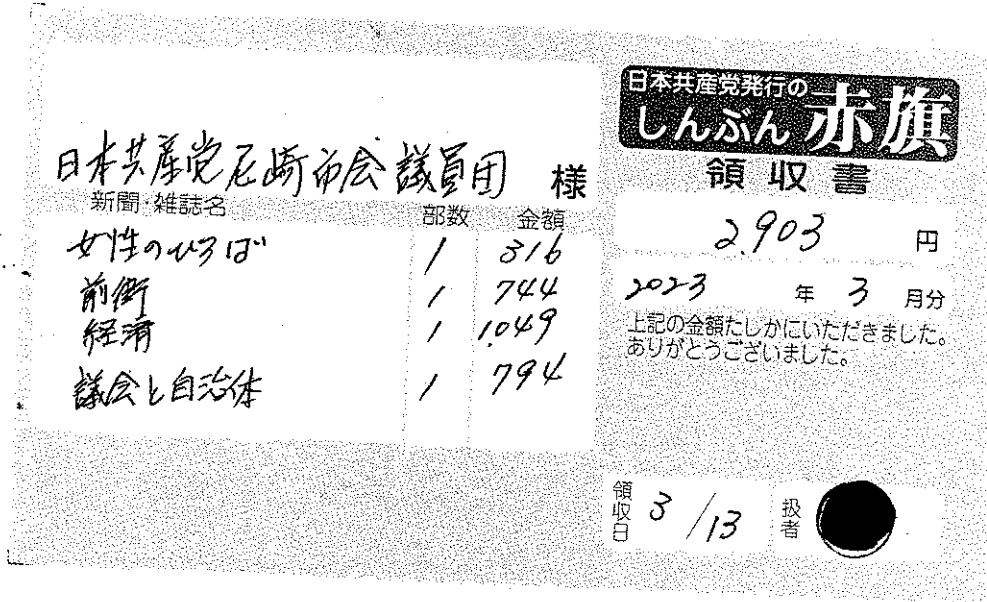 日本共産党尼崎市会議員団 様
新聞・雑誌名 部数 金額
女性のひろば 1 316
前衛 1 744
経済 1 1,049
議会と自治体 1 794
日本共産党発行の
しんぶん赤旗
領収書
2,903 円
2023 年 3 月分
上記の金額たしかにいただきました。
ありがとうございました。
領収日 3/13 扱者